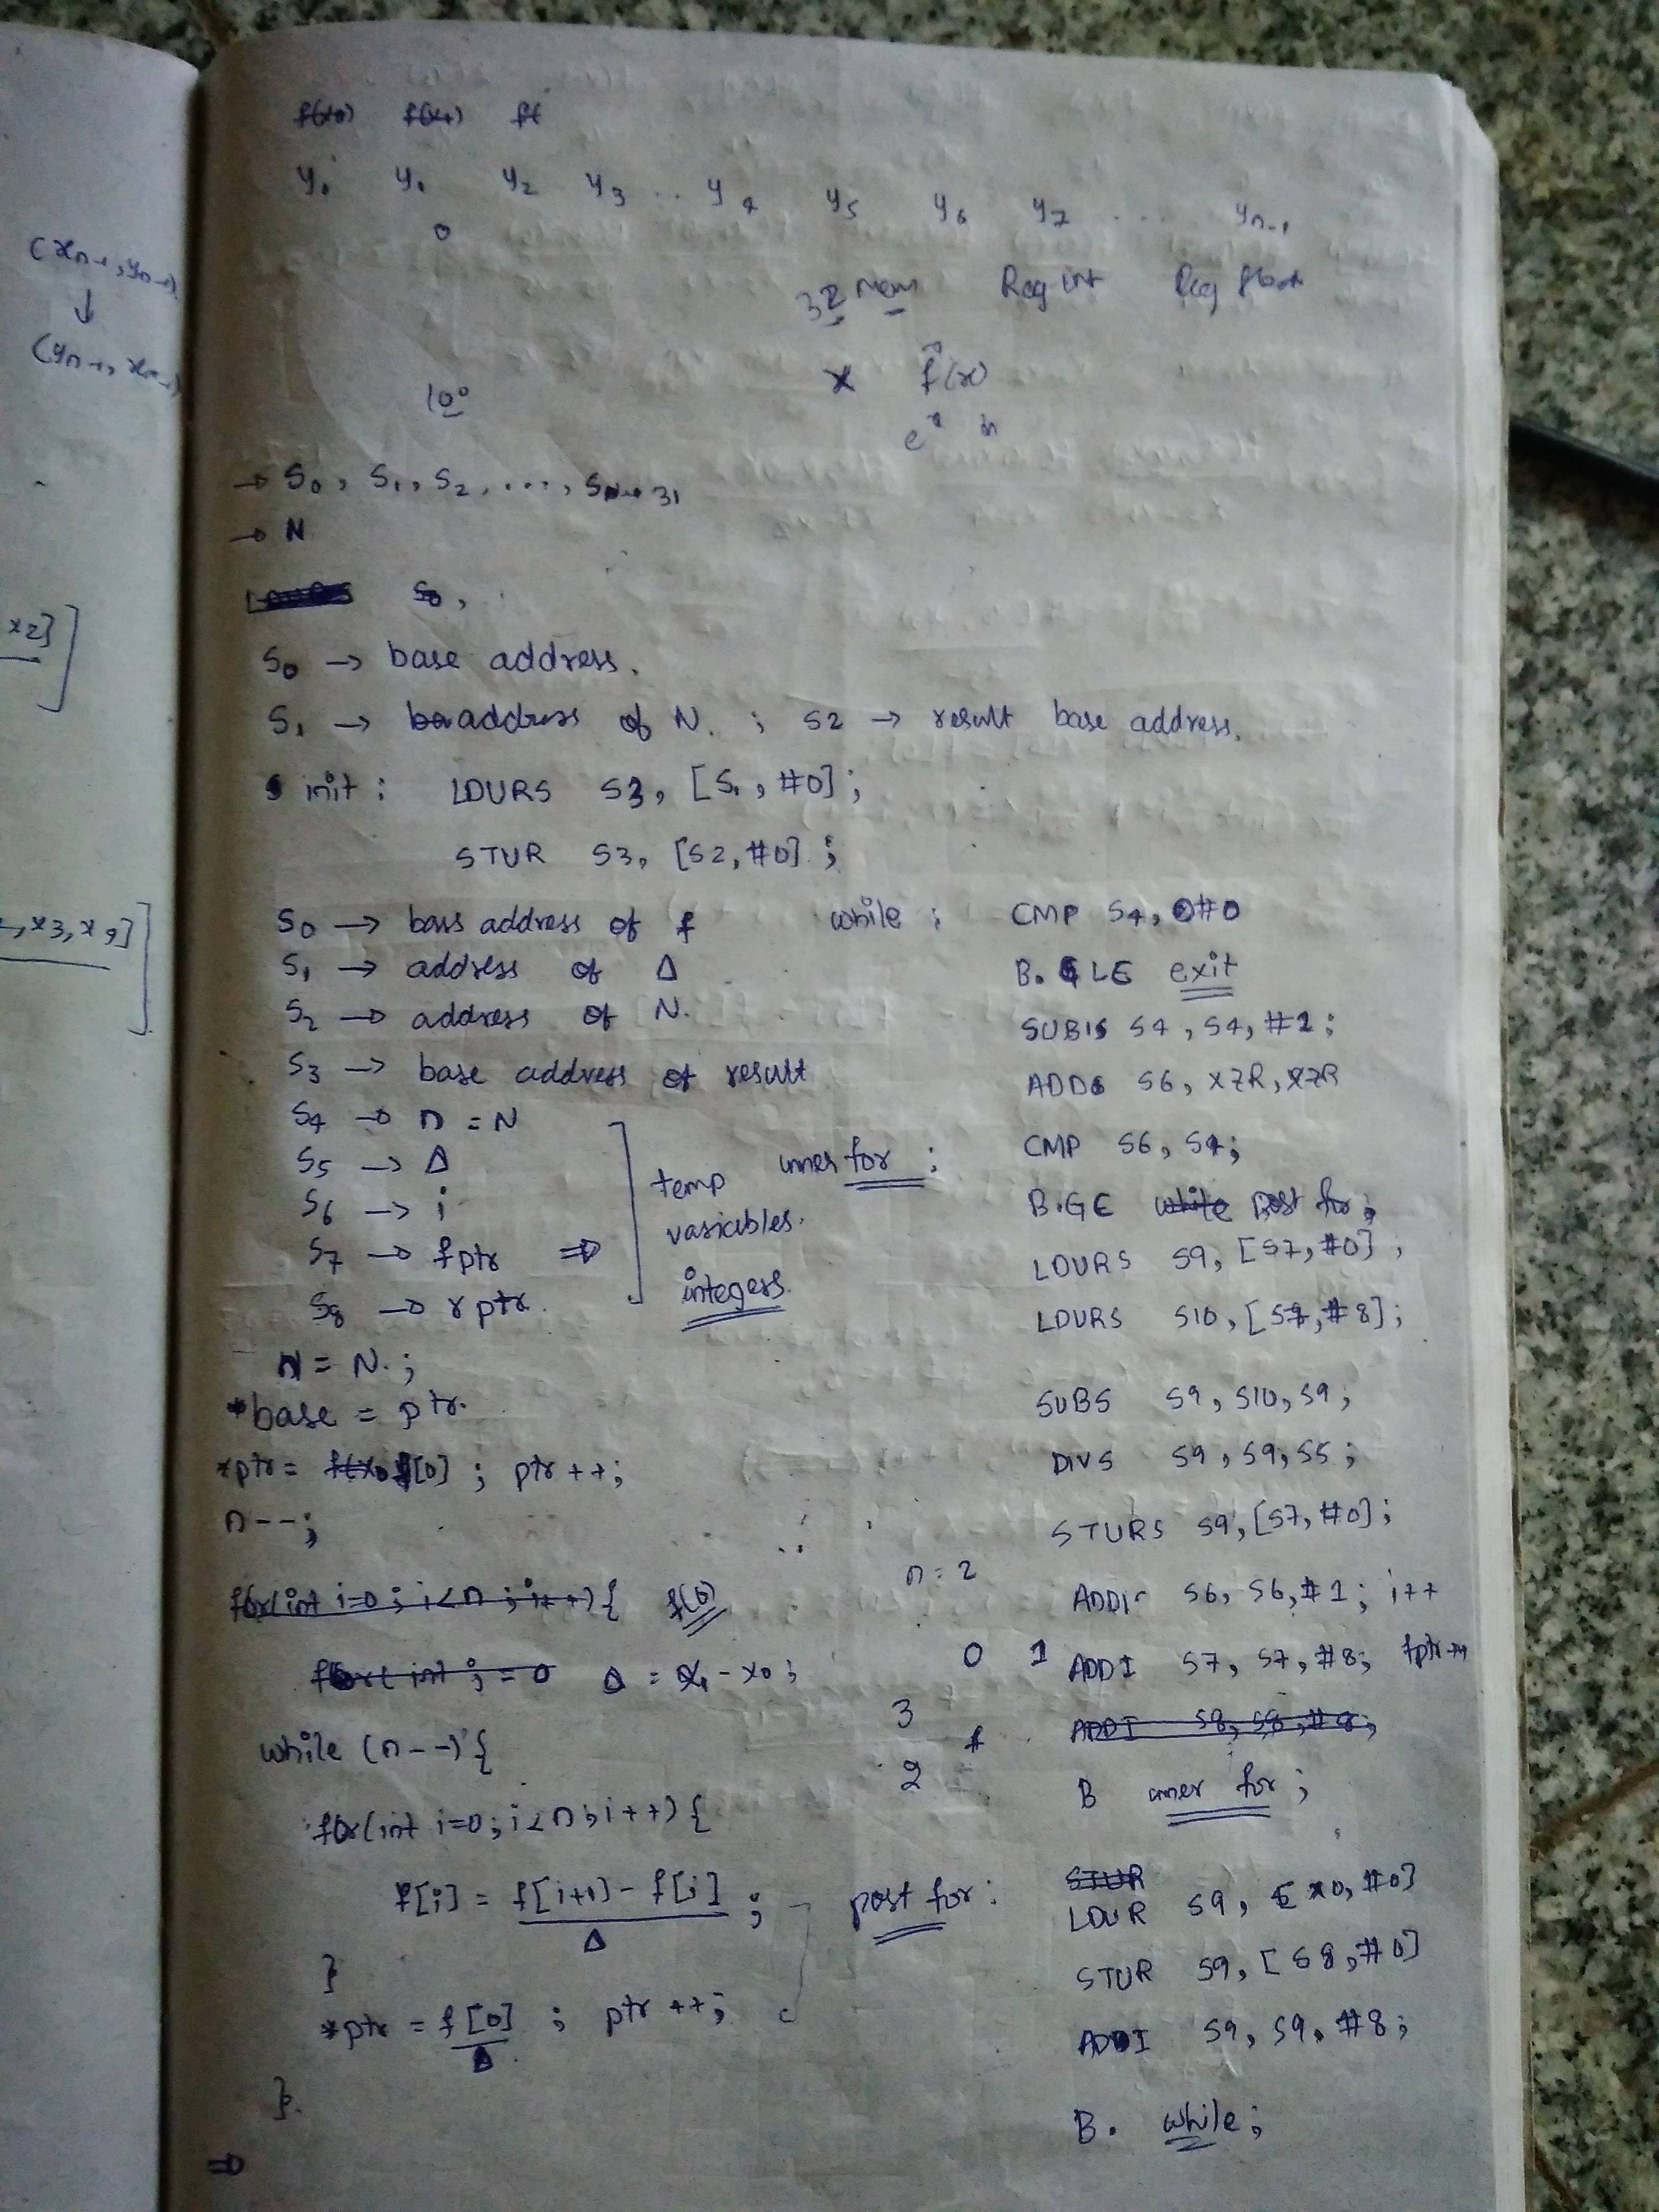 (xn-1, yn-1)
↓
(yn-1, xn-1)
x2]
, x3, x9]
f(x0) f(x1) f(
y0 y1 y2 y3 .. y4 y5 y6 y7 .... yn-1
0
32 mem Reg int Reg float
x f̂(x)
10°
e^x in
→ S0, S1, S2, ...., S 31
→ N
S0,
S0 → base address.
S1 → ba address of N. ; S2 → result base address.
init : LDURS S3, [S1, #0];
STUR S3, [S2, #0];
S0 → bass address of f
S1 → address of Δ
S2 → address of N.
S3 → base address of result
S4 → n = N
S5 → Δ
S6 → i
S7 → fptr ⇒
S8 → rptr.
temp
variables.
integers.
n = N.;
*base = ptr.
*ptr = f(x0 f[0] ; ptr++;
n--;
for(int i=0; i<n; i++){ f(0)
for(int j=0 Δ = x1 - x0;
while (n--){
for(int i=0; i<n; i++){
f[i] = f[i+1] - f[i] ;
Δ
}
*ptr = f[0] ; ptr++;
Δ
}.
⇒
while : CMP S4, #0
B. LE exit
SUBIS S4, S4, #1;
ADDS S6, XZR, XZR
inner for : CMP S6, S4;
B.GE while Post for;
LDURS S9, [S7, #0],
LDURS S10, [S7, #8];
SUBS S9, S10, S9;
DIVS S9, S9, S5;
STURS S9, [S7, #0];
n = 2
ADDI S6, S6, #1; i++
0 1 ADDI S7, S7, #8; fptr++
3
2
ADDI S8, S8, #8;
B inner for;
post for : STUR
LDUR S9, [x0, #0]
STUR S9, [S8, #0]
ADDI S9, S9, #8;
B. while;